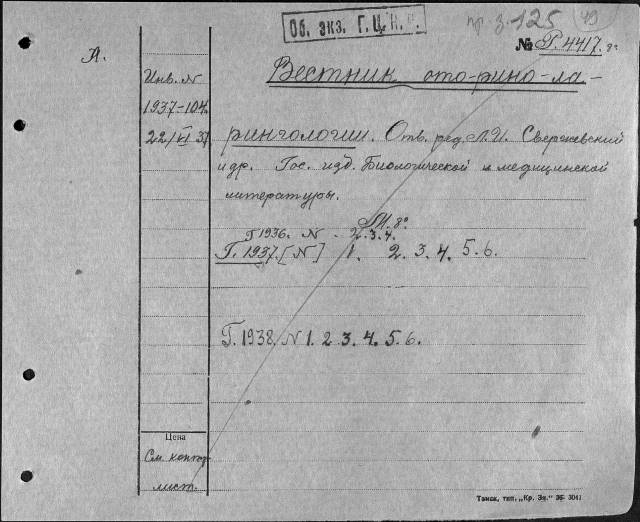 Об. экз. Г.Ц.К.П.
пр з.125 49
№ Р.4417. 8°
А.
Инв. №
1937-104.
22/VI 37
Вестник ото-рино-ла-
рингологии. Отв. ред. Л.И. Свержевский
и др. Гос. изд. биологической и медицинской
литературы.
М. 8°
Г 1936. N - 2.3.4.
Г. 1937. [N] 1. 2. 3. 4. 5. 6.
Г. 1938. N 1. 2. 3. 4. 5. 6.
Цена
См. контр
лист.
Томск, тип. „Кр. Зн." Зк 3041